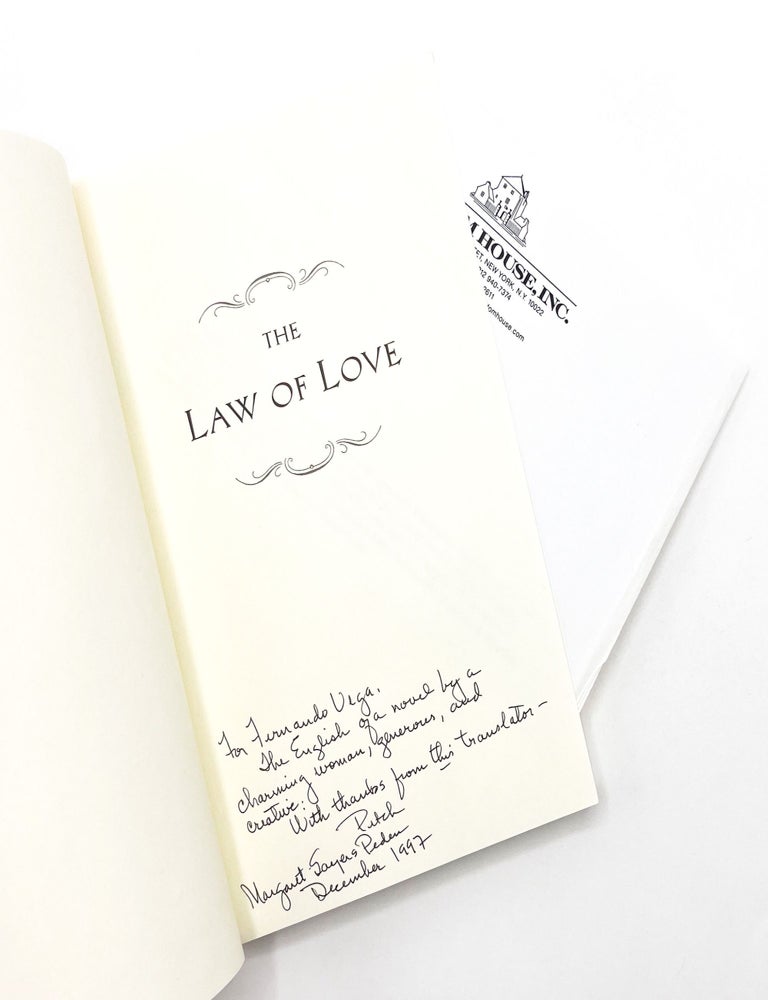 THE
LAW OF LOVE
For Fernando Vega,
The English of a novel by a
charming woman, generous, and
creative:
With thanks from this translator–
Petch
Margaret Sayers Peden
December 1997
M HOUSE, INC.
ET, NEW YORK, N.Y. 10022
12 940-7374
2611
omhouse.com